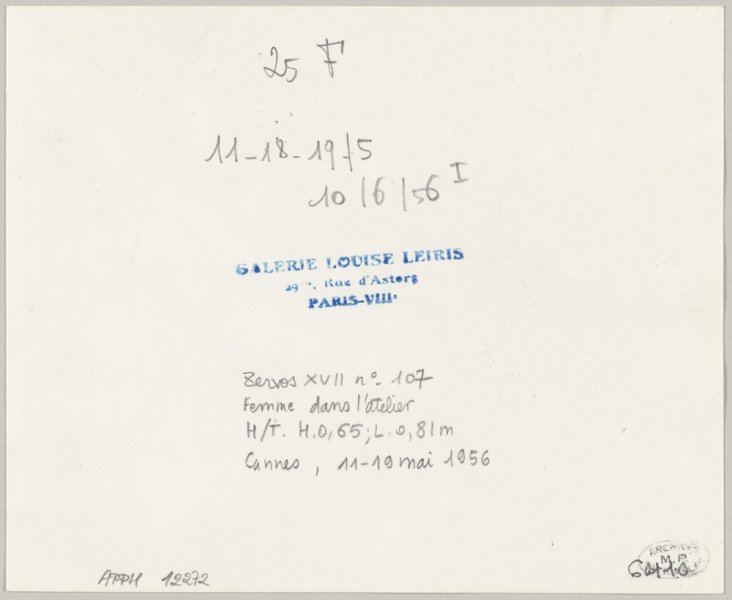 25 F
11-18-19/5
10/6/56 I
GALERIE LOUISE LEIRIS
29bis, Rue d'Astorg
PARIS-VIIIe
Zervos XVII n° 107
Femme dans l'atelier
H/T. H.0,65; L.0,81m
Cannes, 11-19 mai 1956
ARCHIVES
M.P.
APPH 12272